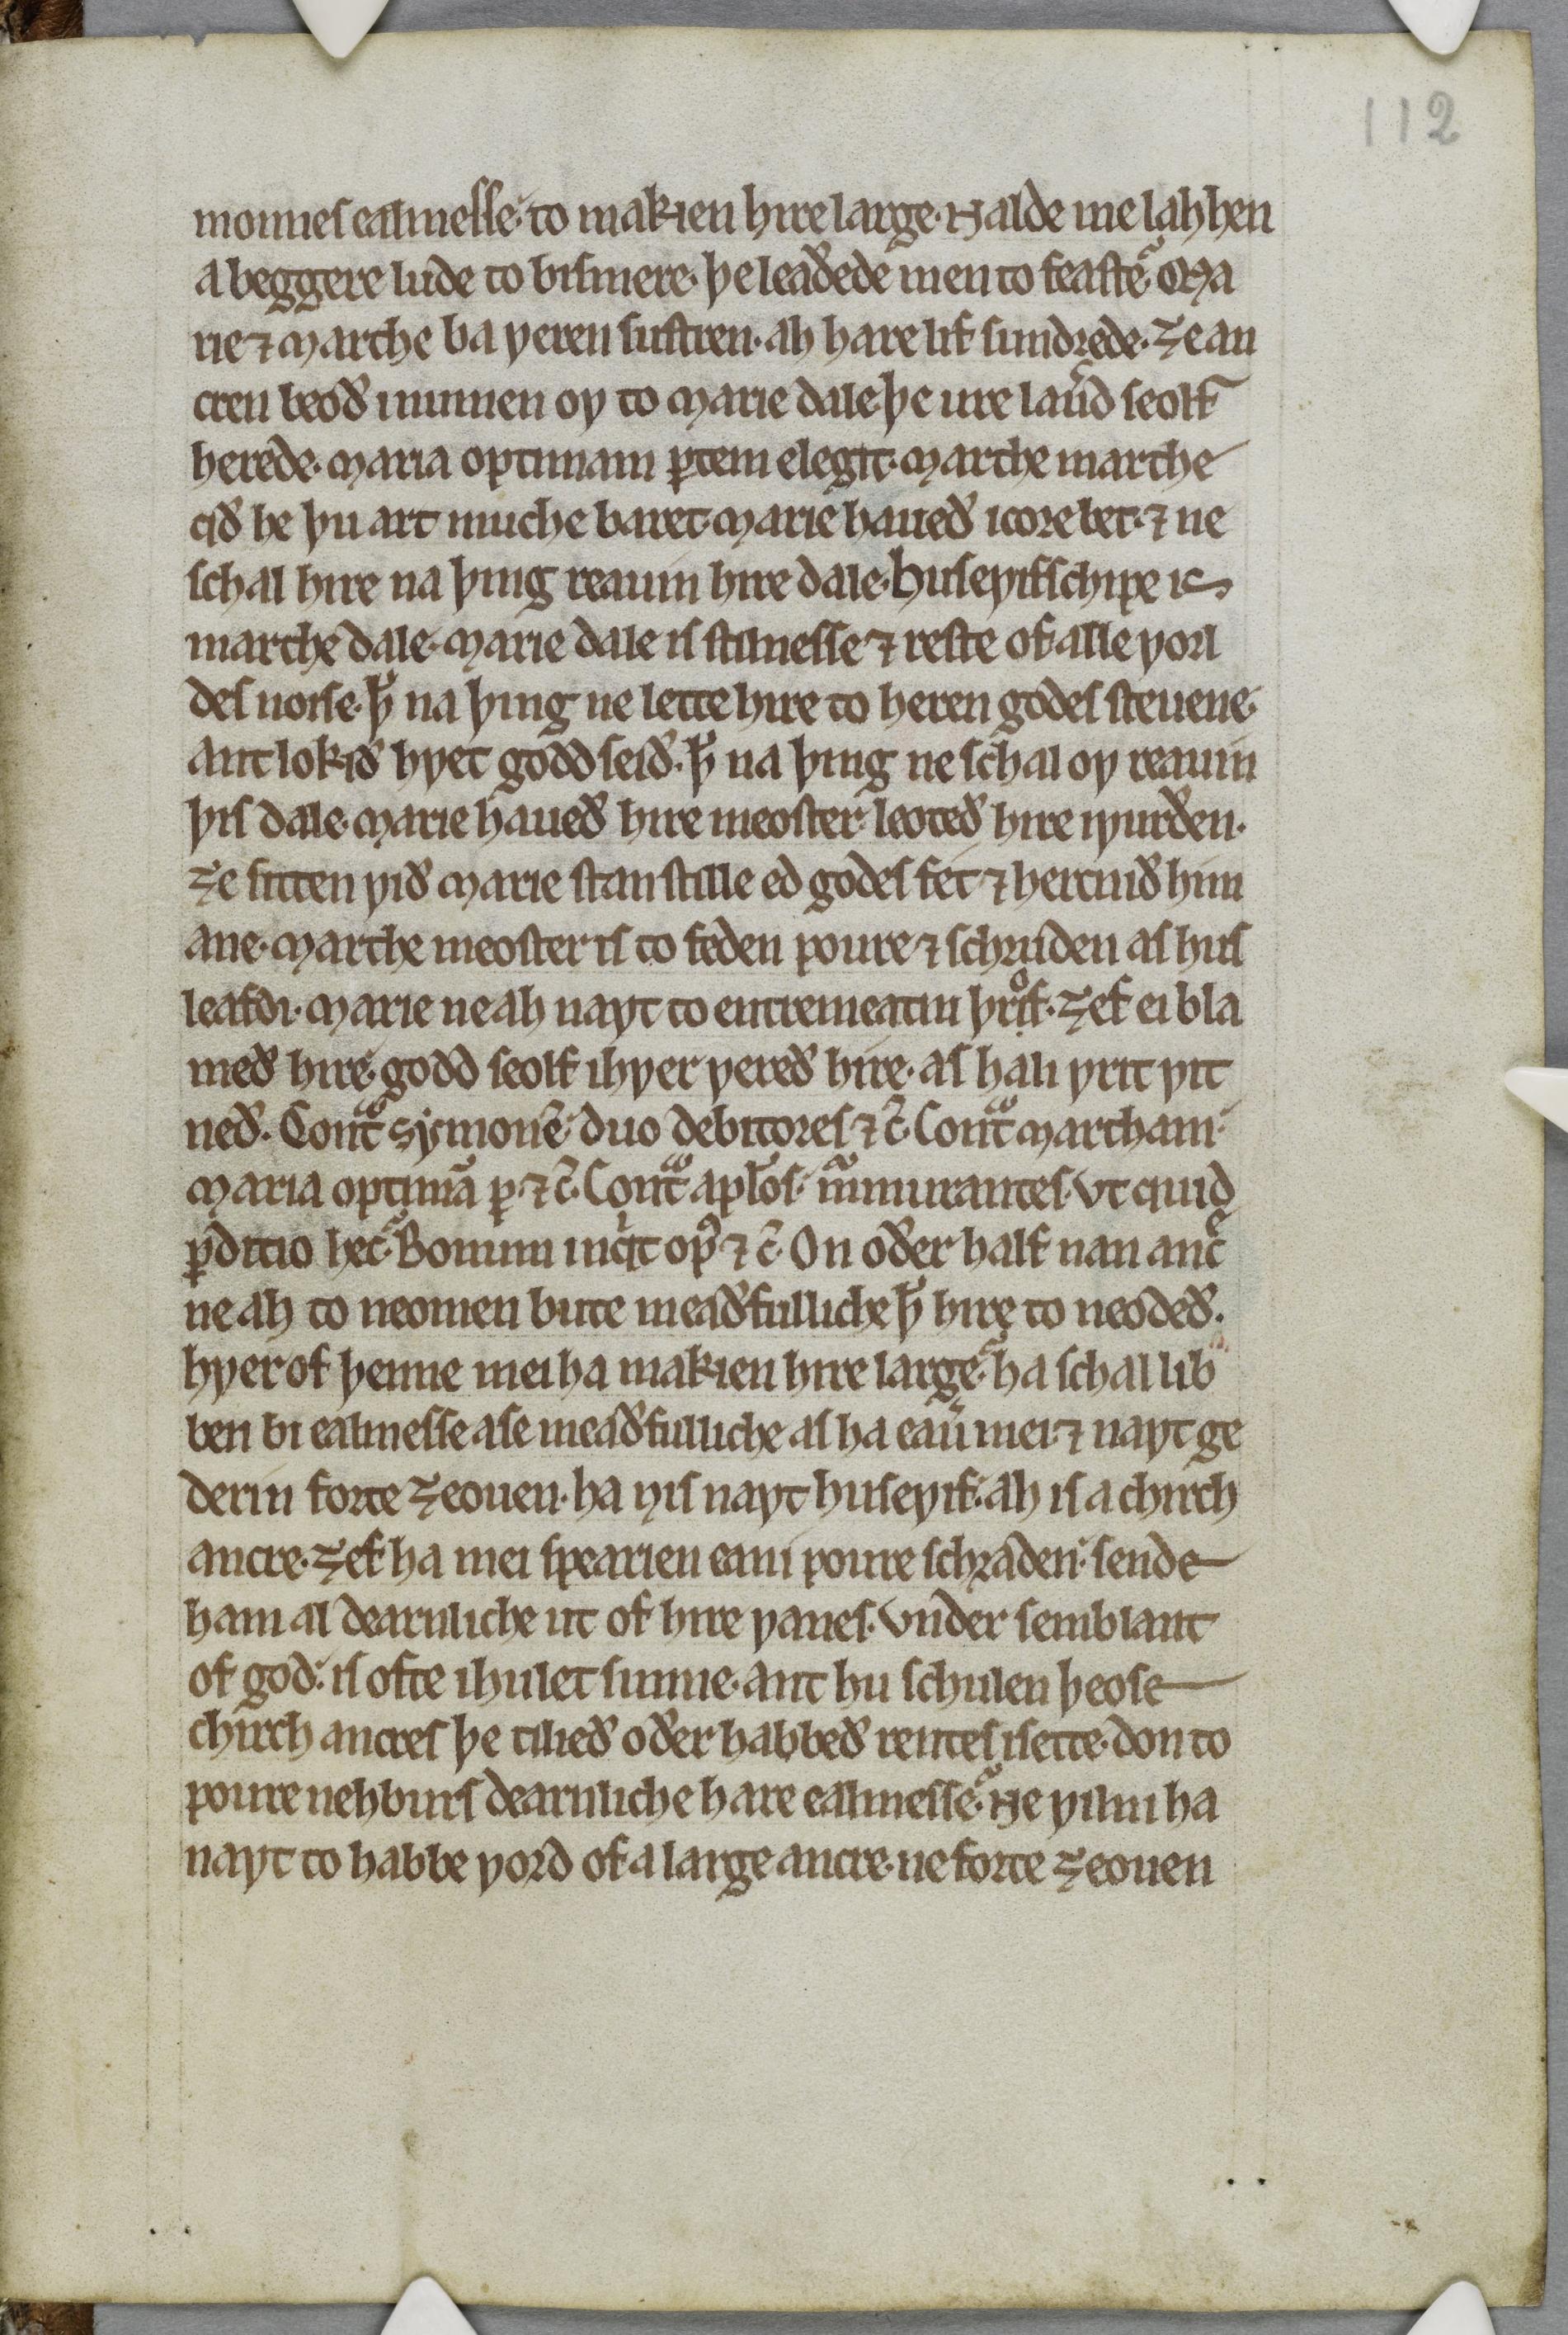 112
monnes ealmesse to makien hire large. Nalde me lahhen
a beggere lude to bismere. þe leaðede men to feaste? Ma
rie ⁊ Marthe ba ƿeren sustren. ah hare lif sundrede. ȝe an
cren beoð inumen oƿ to Marie dale þe ure lauerd seolf
herede. Maria optimam ꝑtem elegit. Marthe marthe
qð he þu art muche baret. Marie haueð icore bet. ⁊ ne
schal hire na þing reauin hire dale. Huseƿifschipe is
marthe dale. Marie dale is stilnesse ⁊ reste of alle ƿorl
des noise. ꝥ na þing ne lette hire to heren godes steuene.
Ant lokið hƿet godd seið. ꝥ na þing ne schal oƿ reauin
þis dale. Marie haueð hire meoster. leoteð hire iƿurðen.
ȝe sitten ƿið Marie stan stille ed godes fet ⁊ hercnið him
ane. Marthe meoster is to feden poure ⁊ schruden as hus
leafdi. Marie ne ah naƿt to entremeatin þrof. ȝef ei bla
með hire. godd seolf ihƿer ƿereð hire. as hali ƿrit ƿit
neð. Contͣ Symonē. duo debitores ⁊ c̄. Contͣ Martham.
Maria optimā ꝑ. ⁊ c̄. Contͣ apl̄os. mͥmurantes. Vt quid
ꝑditio hec? Bonum inqͥt opꝰ ⁊ c̄. On oðer half nan anc̄
ne ah to neomen bute meaðfulliche ꝥ hire to neodeð.
hƿerof þenne mei ha makien hire large? ha schal lib
ben bi ealmesse ase meaðfulliche as ha eau̅ mei ⁊ naƿt ge
derin forte ȝeouen. ha nis naƿt huseƿif. ah is a chirch
ancre. ȝef ha mei spearien eani poure schraden. sende
ham al dearnliche ut of hire ƿanes. Vnder semblant
of god. is ofte ihulet sunne. Ant hu schulen þeose
chirch ancres þe tilieð oðer habbeð rentes isette. don to
poure nehburs dearnliche hare ealmesse? Ne ƿilni ha
naƿt to habbe ƿord of a large ancre. ne forte ȝeouen